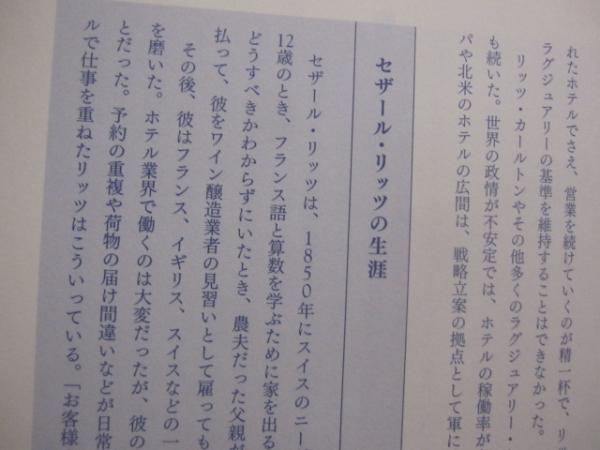 れたホテルでさえ、営業を続けていくのが精一杯で、リ
ラグジュアリーの基準を維持することはできなかった。
リッツ・カールトンやその他多くのラグジュアリー・
も続いた。世界の政情が不安定では、ホテルの稼働率が
パや北米のホテルの広間は、戦略立案の拠点として軍に
セザール・リッツの生涯
セザール・リッツは、1850年にスイスのニー
12歳のとき、フランス語と算数を学ぶために家を出る
どうすべきかわからずにいたとき、農夫だった父親が
払って、彼をワイン醸造業者の見習いとして雇っても
その後、彼はフランス、イギリス、スイスなどの一
を磨いた。ホテル業界で働くのは大変だったが、彼の
とだった。予約の重複や荷物の届け間違いなどが日常
ルで仕事を重ねたリッツはこういっている。「お客様